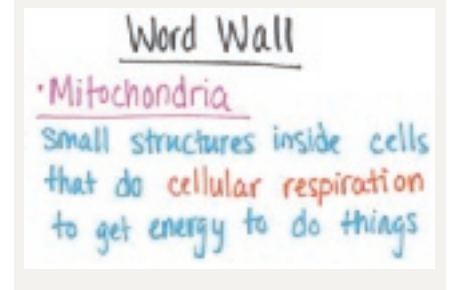 Word Wall
·Mitochondria
Small structures inside cells
that do cellular respiration
to get energy to do things